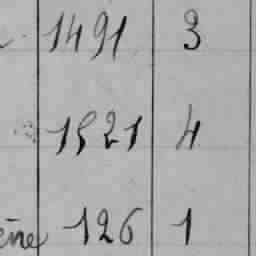 1491 3
1521 4
ène 126 1